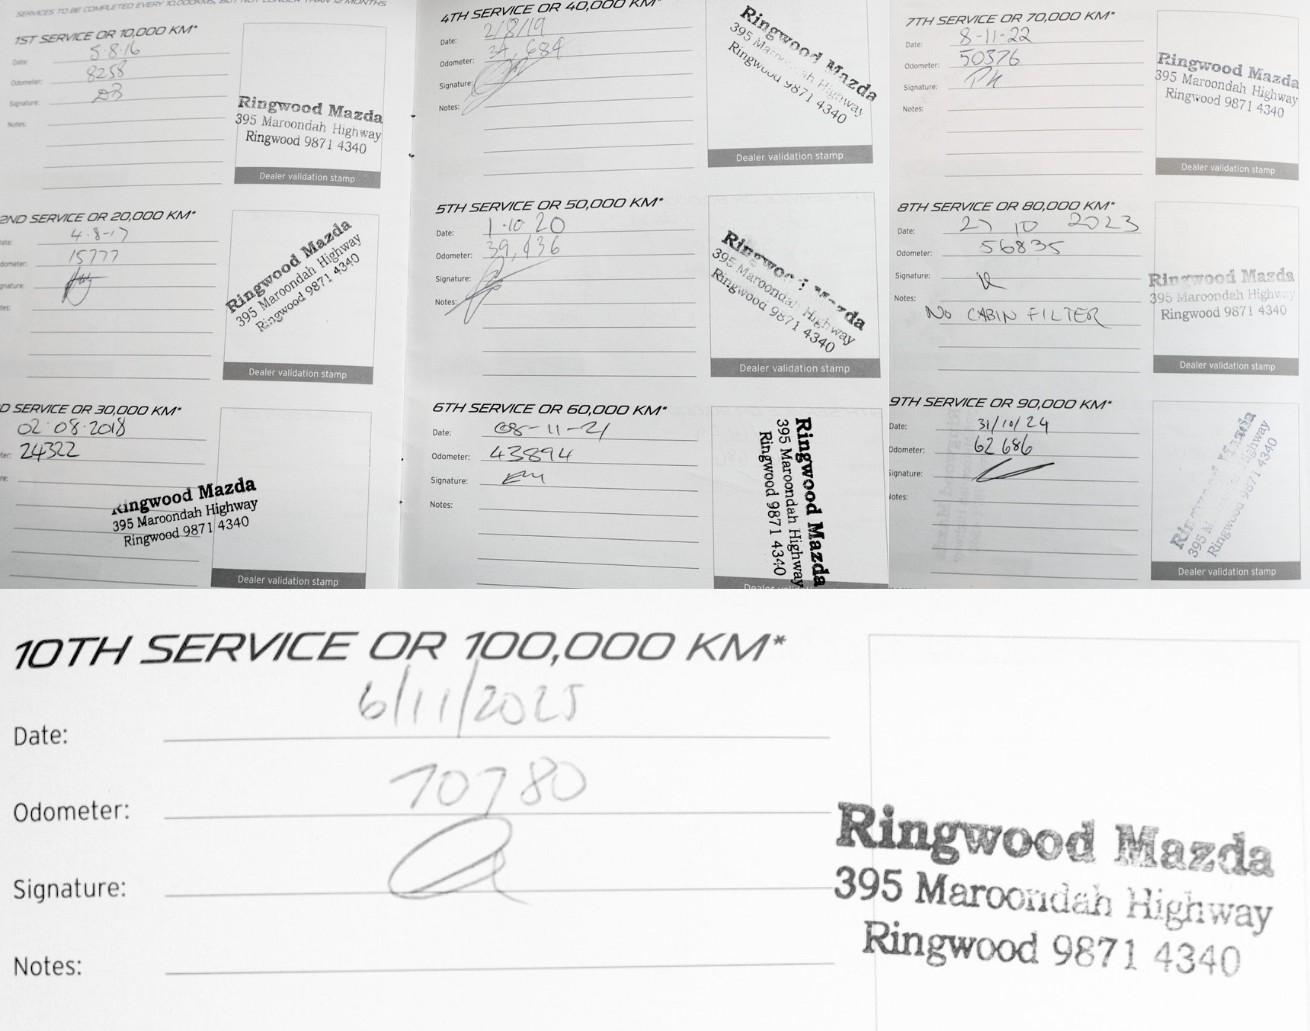 SERVICES TO BE COMPLETED EVERY 10,000KMS, BUT NOT LONGER THAN 12 MONTHS
1ST SERVICE OR 10,000 KM*
Date: 5.8.16
Odometer: 8258
Signature:
Notes:
Ringwood Mazda
395 Maroondah Highway
Ringwood 9871 4340
Dealer validation stamp
2ND SERVICE OR 20,000 KM*
ate: 4.8-17
dometer: 15777
gnature:
tes:
Ringwood Mazda
395 Maroondah Highway
Ringwood 9871 4340
Dealer validation stamp
D SERVICE OR 30,000 KM*
02.08.2018
ter: 24322
re:
Ringwood Mazda
395 Maroondah Highway
Ringwood 9871 4340
Dealer validation stamp
4TH SERVICE OR 40,000 KM*
Date: 2/8/19
Odometer: 34,684
Signature:
Notes:
Ringwood Mazda
395 Maroondah Highway
Ringwood 9871 4340
Dealer validation stamp
5TH SERVICE OR 50,000 KM*
Date: 1.10 20
Odometer: 39,436
Signature:
Notes:
Ringwood Mazda
395 Maroondah Highway
Ringwood 9871 4340
Dealer validation stamp
6TH SERVICE OR 60,000 KM*
Date: 08-11-21
Odometer: 43894
Signature:
Notes:
Ringwood Mazda
395 Maroondah Highway
Ringwood 9871 4340
Dealer validation stamp
7TH SERVICE OR 70,000 KM*
Date: 8-11-22
Odometer: 50376
Signature:
Notes:
Ringwood Mazda
395 Maroondah Highway
Ringwood 9871 4340
Dealer validation stamp
8TH SERVICE OR 80,000 KM*
Date: 27 10 2023
Odometer: 56835
Signature:
Notes:
NO CABIN FILTER
Ringwood Mazda
395 Maroondah Highway
Ringwood 9871 4340
Dealer validation stamp
9TH SERVICE OR 90,000 KM*
Date: 31/10/24
Odometer: 62686
Signature:
Notes:
Ringwood Mazda
395 M Highway
Ringwood 9871 4340
Dealer validation stamp
10TH SERVICE OR 100,000 KM*
Date: 6/11/2025
Odometer: 70780
Signature:
Notes:
Ringwood Mazda
395 Maroondah Highway
Ringwood 9871 4340